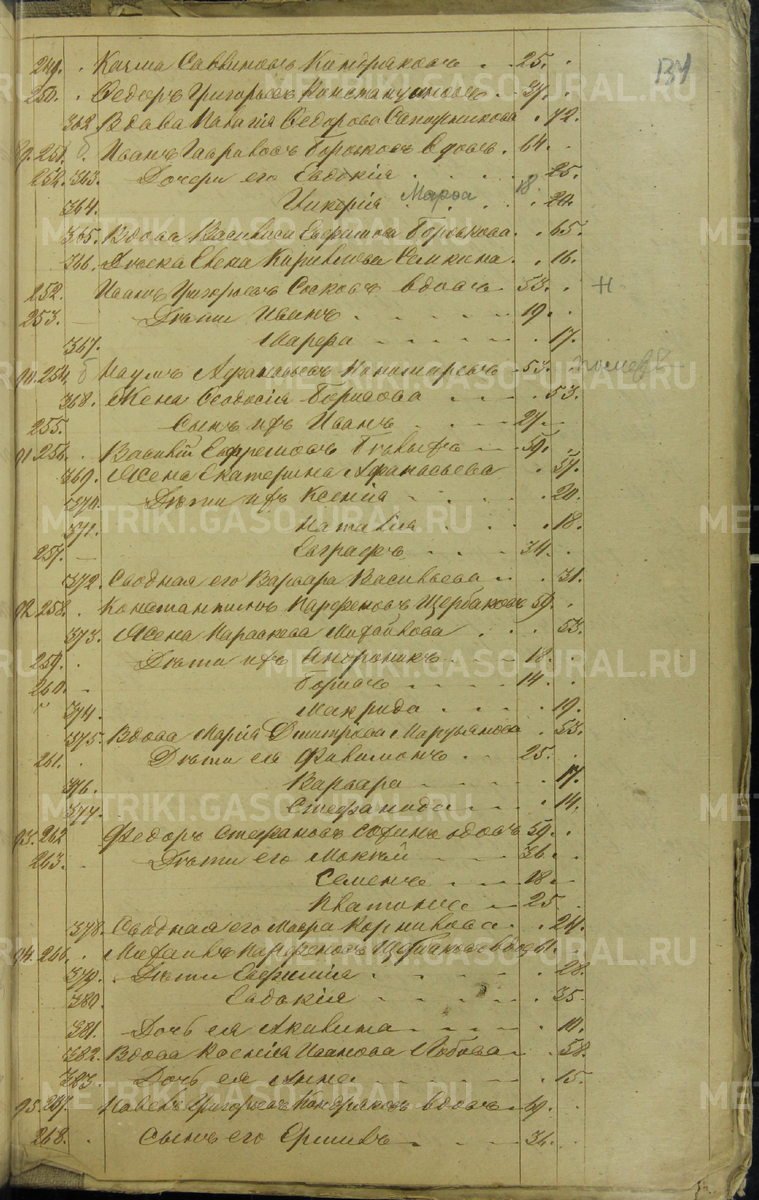 137
249. Козма Саввиновъ Кондраковъ 25.
250. Федоръ Григорьевъ Константиновъ 37.
362 Вдова Наталія Федорова Сапожникова 72.
9. 251. Иванъ Гавриловъ Горожовъ вдовъ 64.
252. 363. Дочери его Евдокія 25.
364. Марѳа 18 24
365. Вдова Василиса Евфимова 65.
366. Дѣвка Елена Кирилова Семкина 16.
252. Иванъ Григорьевъ Сосковъ вдовъ 53. Н
253. Дѣти Иванъ 19.
367. Марфа 17.
90. 254. Наумъ Афанасьевъ Пономаревъ 53. померъ
368. Жена Феодосія Борисова 53.
255. Сынъ ихъ Иванъ 21.
91. 256. Василій Ефремовъ 59.
369. Жена Екатерина Афанасьева 57.
370. Дѣти ихъ Ксенія 20.
371. Наталія 18.
257. Евграфъ 34.
372. Сводная его Варвара Васильева 31.
92. 258. Константинъ Парфеновъ Щербаковъ 59.
373. Жена Парасковья Михайлова 53.
259. Дѣти ихъ Андроникъ 18.
260. Борисъ 14.
374. Макрида 19.
375. Вдова Марія Дмитрова 53.
261. Дѣти ея Филимонъ 25.
376. Варвара 17.
377. Стефанида 14.
93. 262 Федоръ Степановъ вдовъ 59.
263. Дѣти его Мокѣй 36.
Семенъ 18
Платонъ 25
378. Сводная его Мавра Корнилова 24.
94. 266. Михаилъ Парфеновъ
379. Дѣти Евфимія 28.
380. Евдокія 35.
381. Дочь ея Акилина 11.
382. Вдова Ксенія Иванова 58.
383. Дочь ея Анна 15.
95. 267. Павелъ Григорьевъ Кондраковъ вдовъ 69.
268. Сынъ его Ермилъ 36.
METRIKI.GASO-URAL.RU